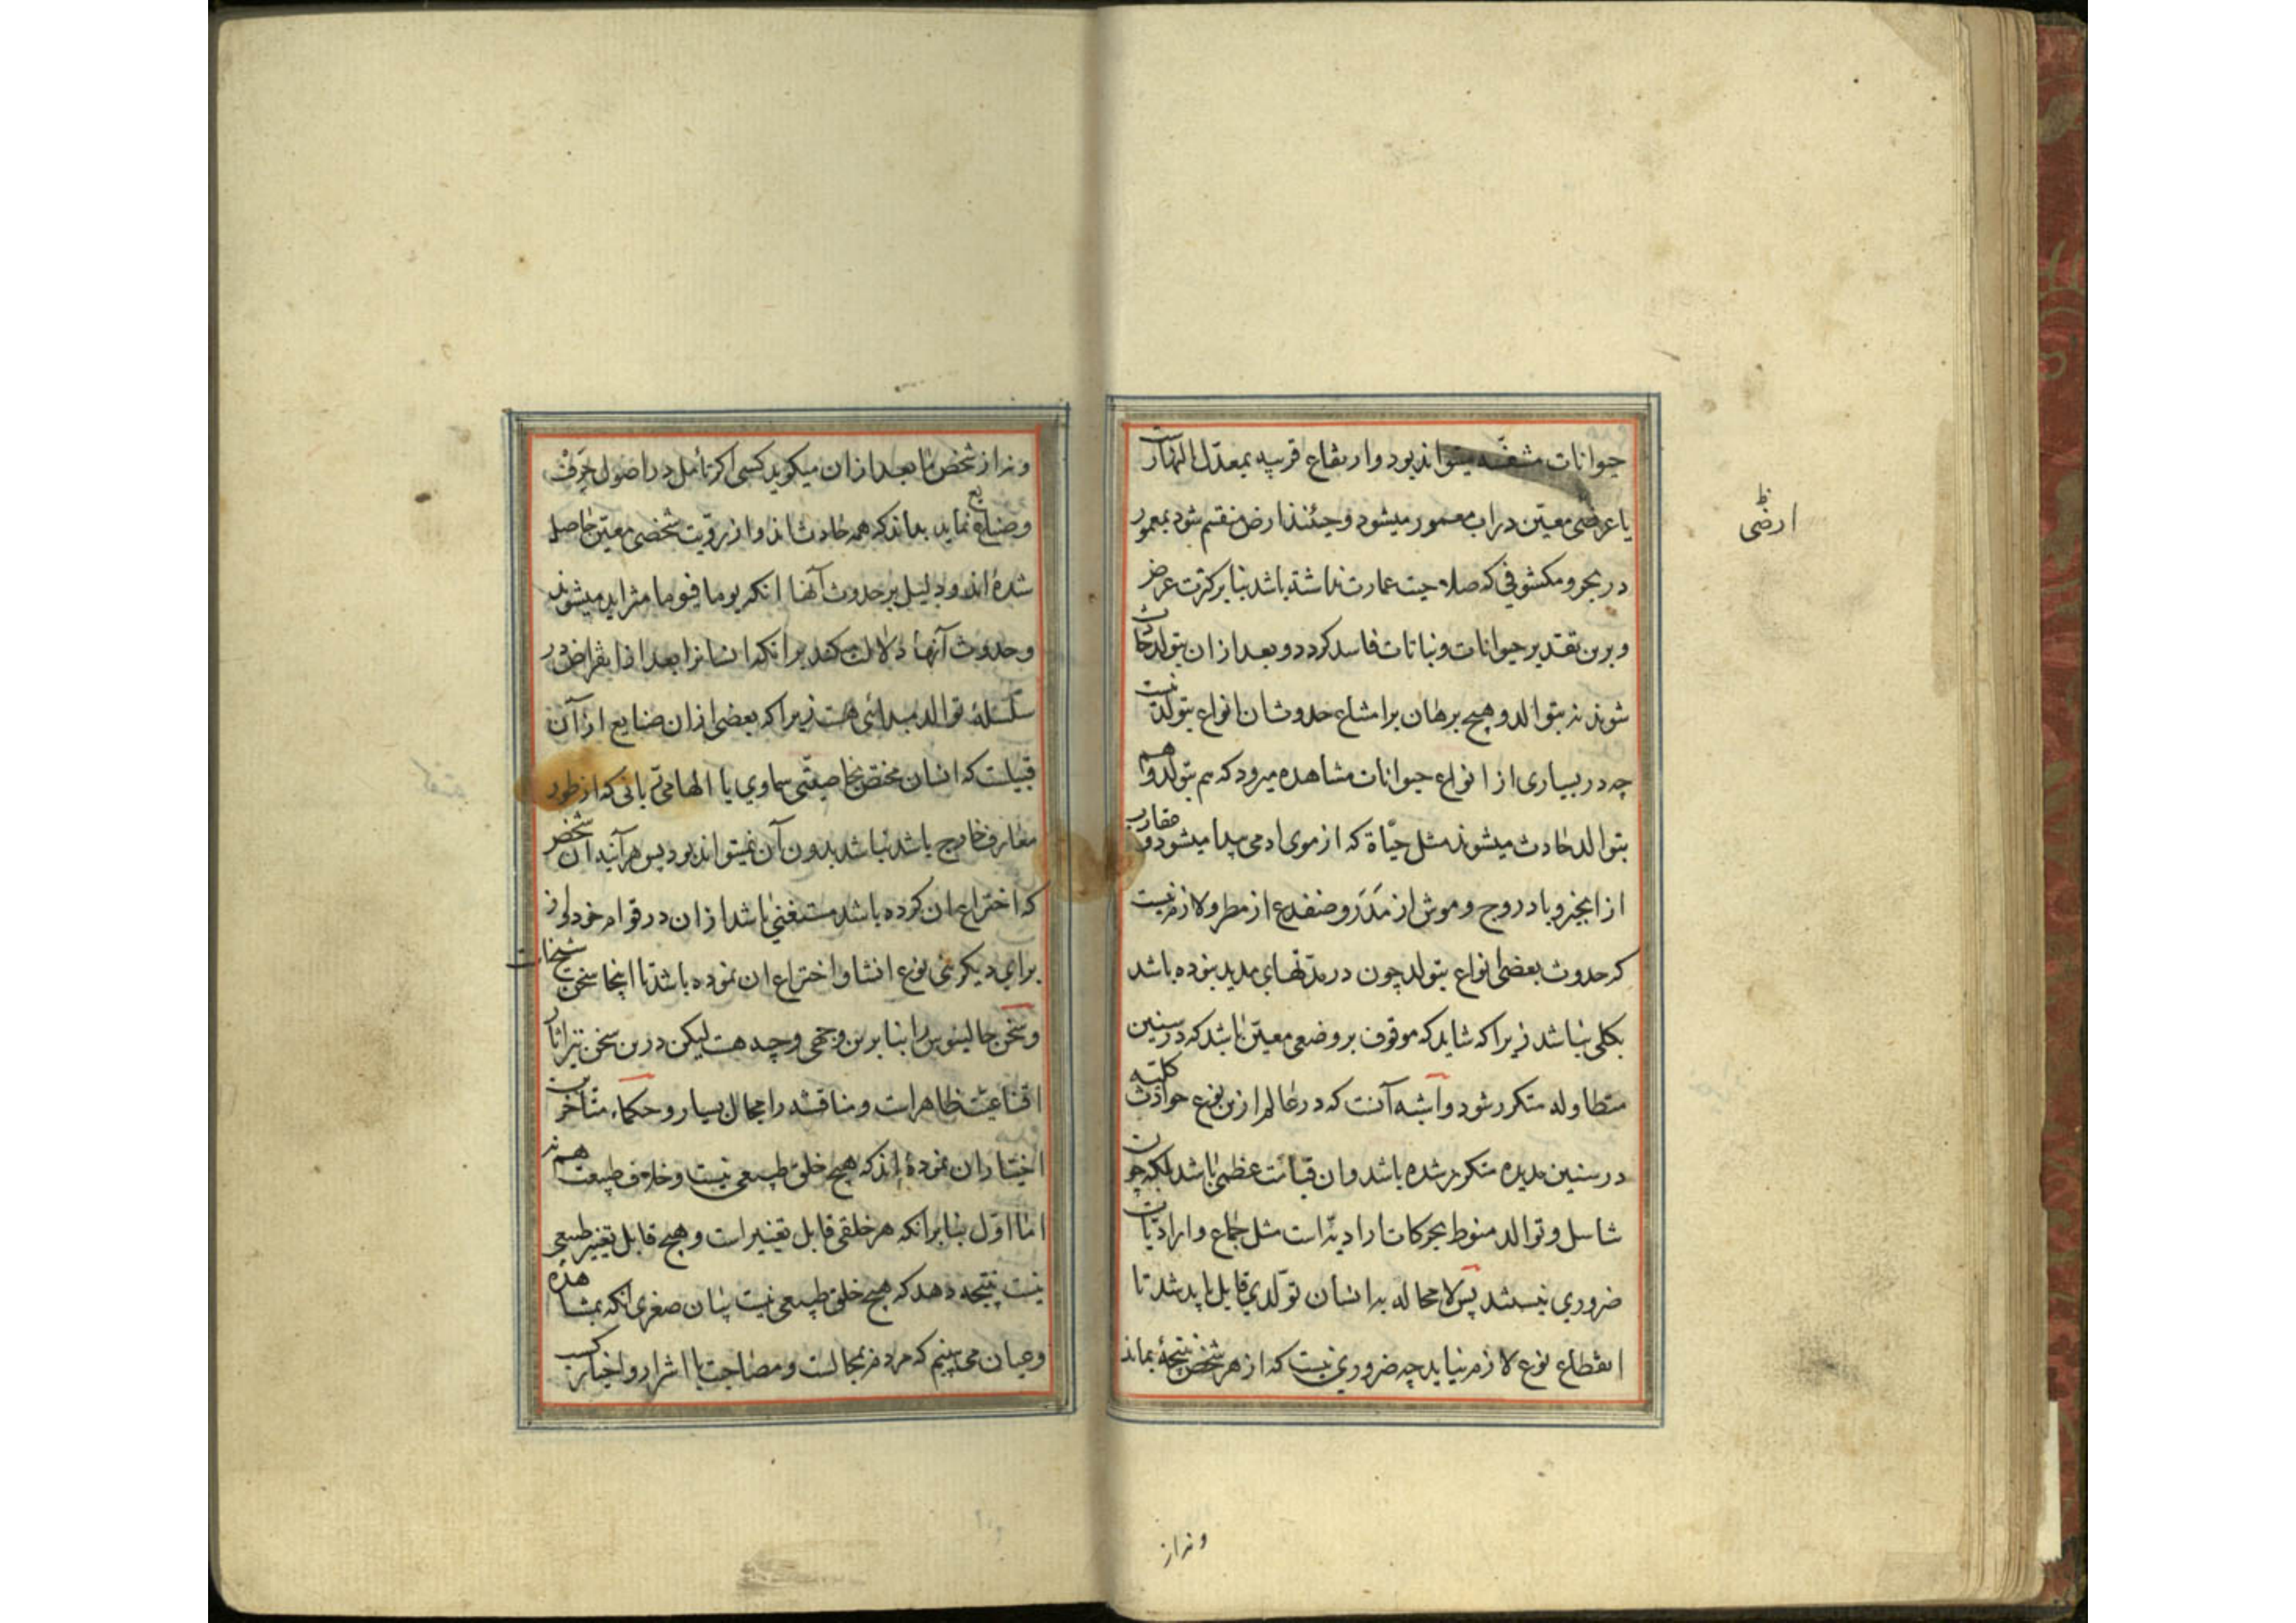 حیوانات مشقّه میتواند بود وار بقاع قریبه بمعدّل النهارست
یا عرضی معیّن دراب معمور میشود وحینئذ ارض منقسم شود بمعمور
ارضی
در بحر و مکشوفی که صلاحیت عمارت نداشته باشد بنا بر کثرت عرض
و برین تقدیر حیوانات و نباتات فاسد کردد و بعد ازان بتولد حادث
شوند نه بتوالد و هیچ برهان بر امتناع حدوث ان انواع بتولد نیست
چه در بسیاری از انواع حیوانات مشاهده میرود که هم بتولد و هم
بتوالد حادث میشوند مثل حیّاة که از موی ادمی پیدا میشود و عقارب
از انجیر و بادروج و موش از مَدَر و ضفدع از مطر و لازم نیست
که حدوث بعضی انواع بتولد چون در مدّتهای مدید بنوده باشد
بکلی نباشد زیرا که شاید که موقوف بر وضعی معیّن باشد که در سنین
متطاوله متکرر شود و اشبه آنست که در عالم ازین نوع حوادث کلیّه
در سنین مدیده متکرر شده باشد و ان قیامت عظمی باشد بلکه چون
تناسل و توالد منوط بحرکات ارادیّه است مثل جماع و ارادیّات
ضروری نیستند پس لا محاله بر انسان تولّدی قابل باید شد تا
انقطاع نوع لازم نیاید چه ضروری نیست که از هر شخص نتیجهٔ بماند
و نه از
و نه از شخص ما بعد ازان میکوید کسی اکر تأمل در اصول حِرَفْ
و صنایع نماید بداند که همه حادث اند و از رویّت شخصی معیّن حاصل
شده اند و دلیل بر حدوث آنها انکه یوما فیوما متزاید میشوند
و حدوث آنها دلالت میکند بر انکه انسانرا بعد از انقراض در
سلسلهٔ توالد مبدائی هست زیرا که بعضی ازان صنایع از آن
قبیلست که انسان مختص بخاصیتّی سماوی یا الهامی ربّانی که از طور
متعارف خارج باشد نباشد بدون آن نمیتواند بود پس هرآینه ان شخص
که اختراع ان کرده باشد مستغنی باشد ازان در قوام خود و از
برای دیکر بنی نوع انشا و اختراع ان نموده باشد تا اینجا سخن شیخ است
و سخن جالینوس را بنا برین وجهی وجیه هست لیکن درین سخن نیز اثار
اقناعیّت ظاهرست و مناقشه را مجال بسیار و حکماء متأخرین
اختیار ان نموده اند که هیچ خلق طبیعی نیست و خلاف طبیعت هم نه
امّا اوّل بنا بر انکه هر خلقی قابل تغییر است و هیچ قابل تغییر طبیعی
نیست نتیجه دهد که هیچ خلق طبیعی نیست بیان صغری انکه بمشاهده
و عیان می بینیم که مردم بمجالست و مصاحبت با اشرار و اخیار کسب